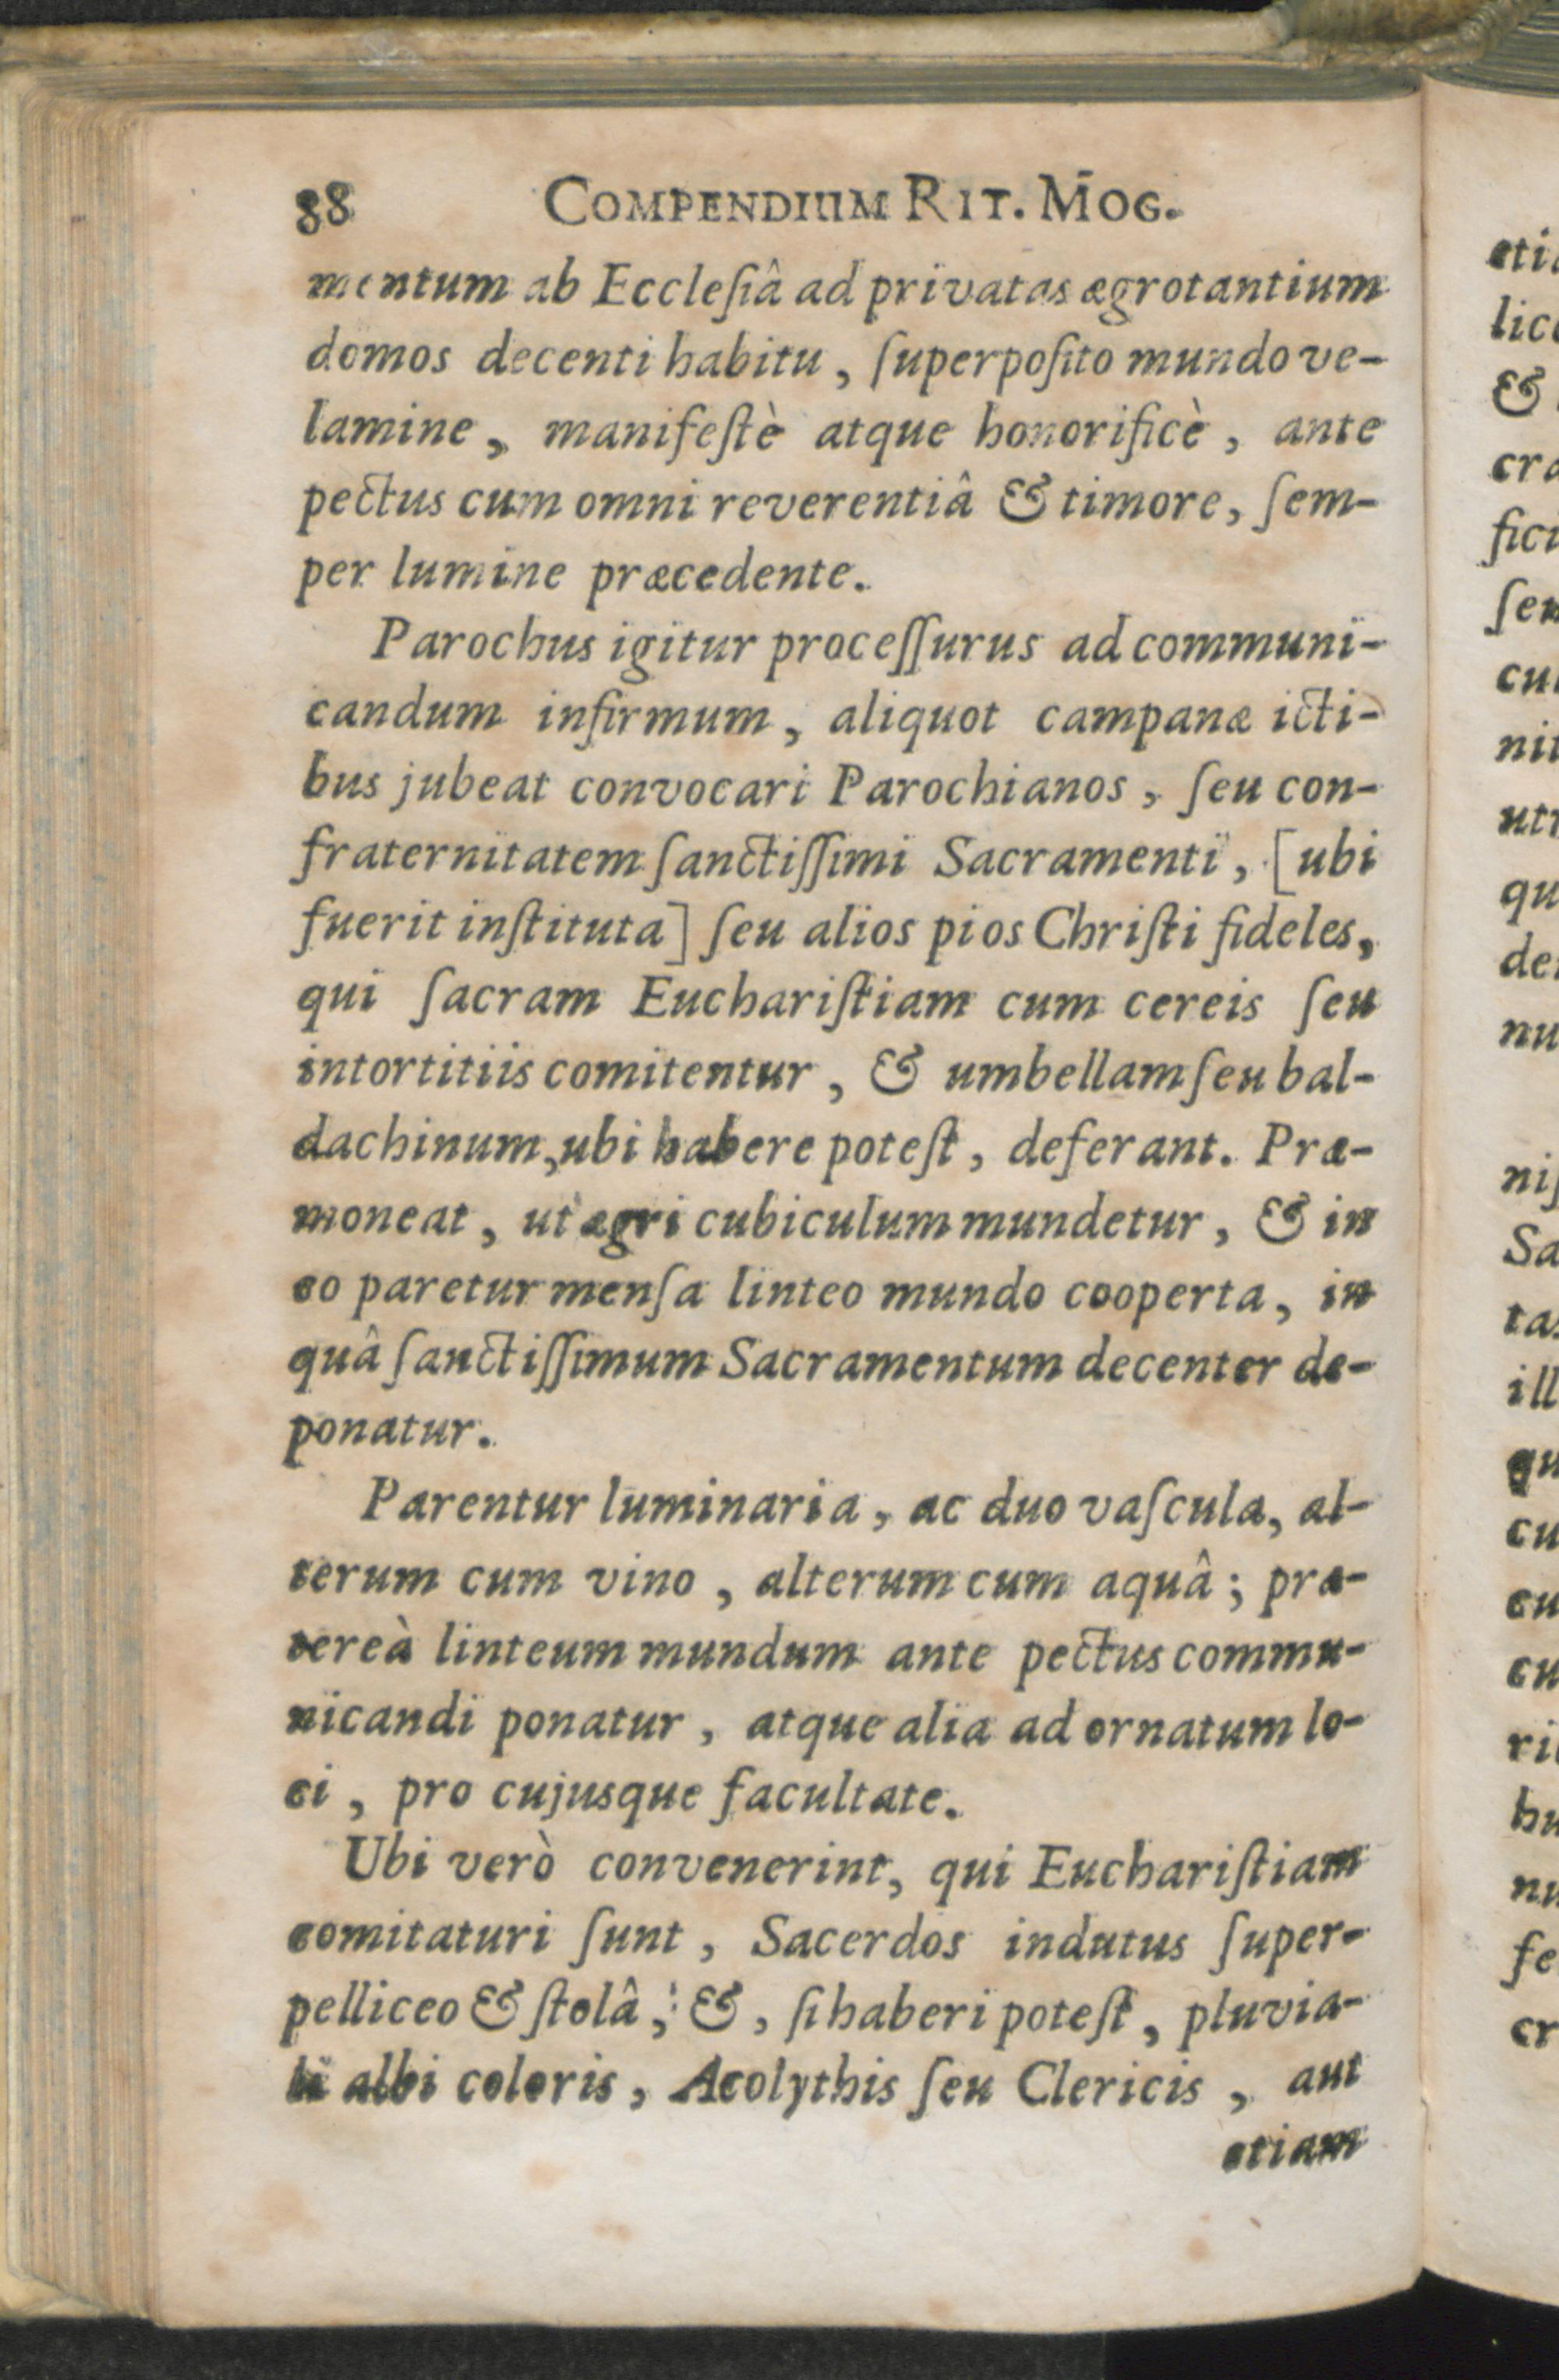 88 COMPENDIUM RIT. MOG.
mentum ab Eccleſiâ ad privatas ægrotantium
domos decenti habitu, ſuperpoſito mundo ve-
lamine, manifeſtè atque honorificè, ante
pectus cum omni reverentiâ & timore, ſem-
per lumine præcedente.
Parochus igitur proceſſurus ad communi-
candum infirmum, aliquot campanæ icti-
bus jubeat convocari Parochianos, ſeu con-
fraternitatem ſanctiſſimi Sacramenti, [ubi
fuerit inſtituta] ſeu alios pios Chriſti fideles,
qui ſacram Euchariſtiam cum cereis ſeu
intortitiis comitentur, & umbellam ſeu bal-
dachinum, ubi habere poteſt, deferant. Præ-
moneat, ut ægri cubiculum mundetur, & in
eo paretur menſa linteo mundo cooperta, in
quâ ſanctiſſimum Sacramentum decenter de-
ponatur.
Parentur luminaria, ac duo vaſcula, al-
terum cum vino, alterum cum aquâ; præ-
tereà linteum mundum ante pectus commu-
nicandi ponatur, atque alia ad ornatum lo-
ci, pro cujusque facultate.
Ubi verò convenerint, qui Euchariſtiam
comitaturi ſunt, Sacerdos indutus ſuper-
pelliceo & ſtolâ, & , ſi haberi poteſt, pluvia-
li albi coloris, Acolythis ſeu Clericis, aut
etiam